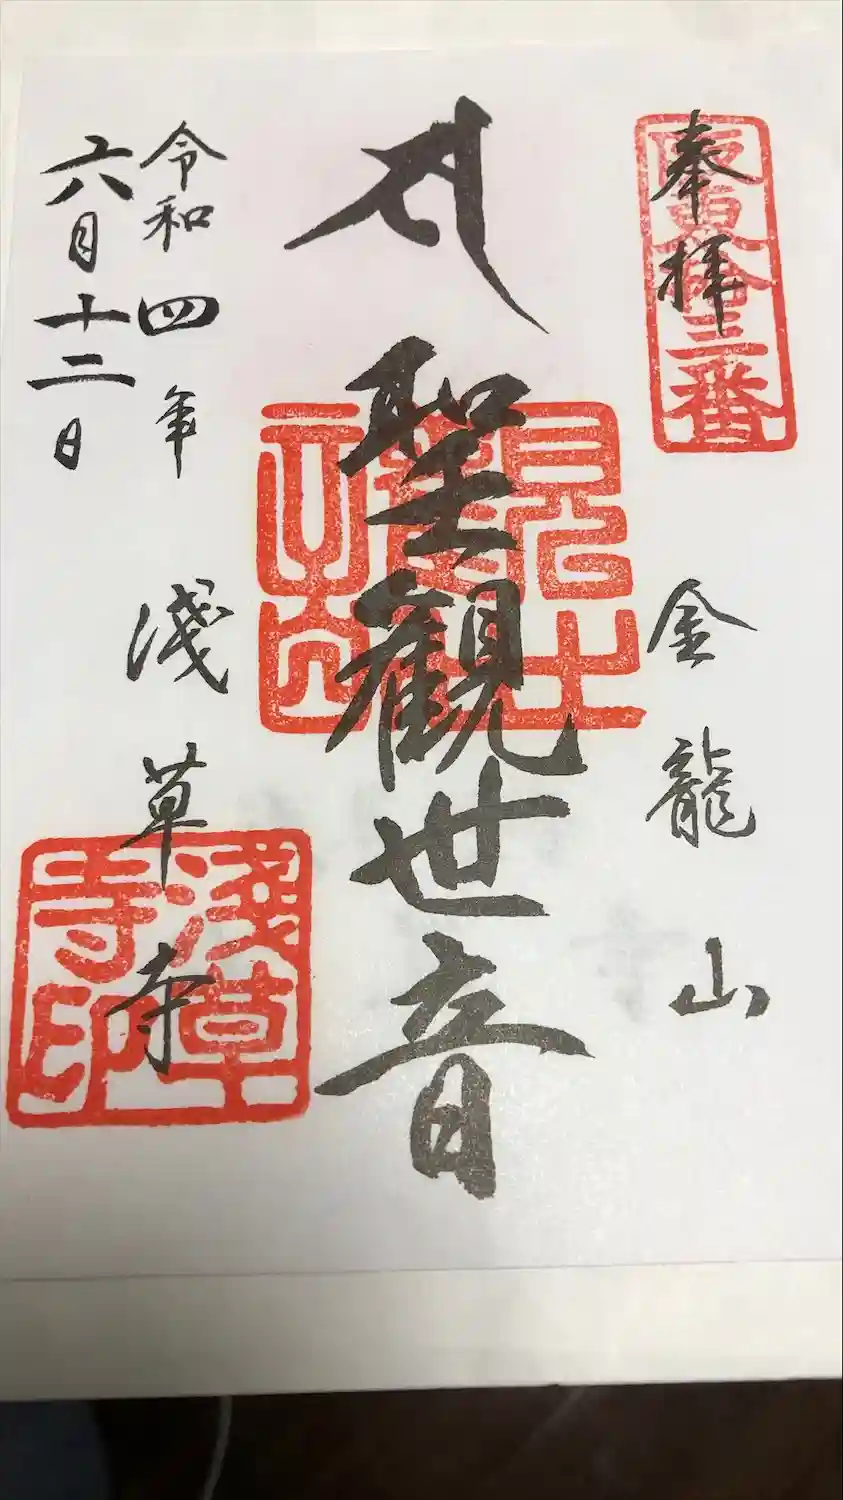 奉拝
坂東拾三番
金龍山
聖観世音
令和四年
六月十二日
淺草寺
淺草寺印